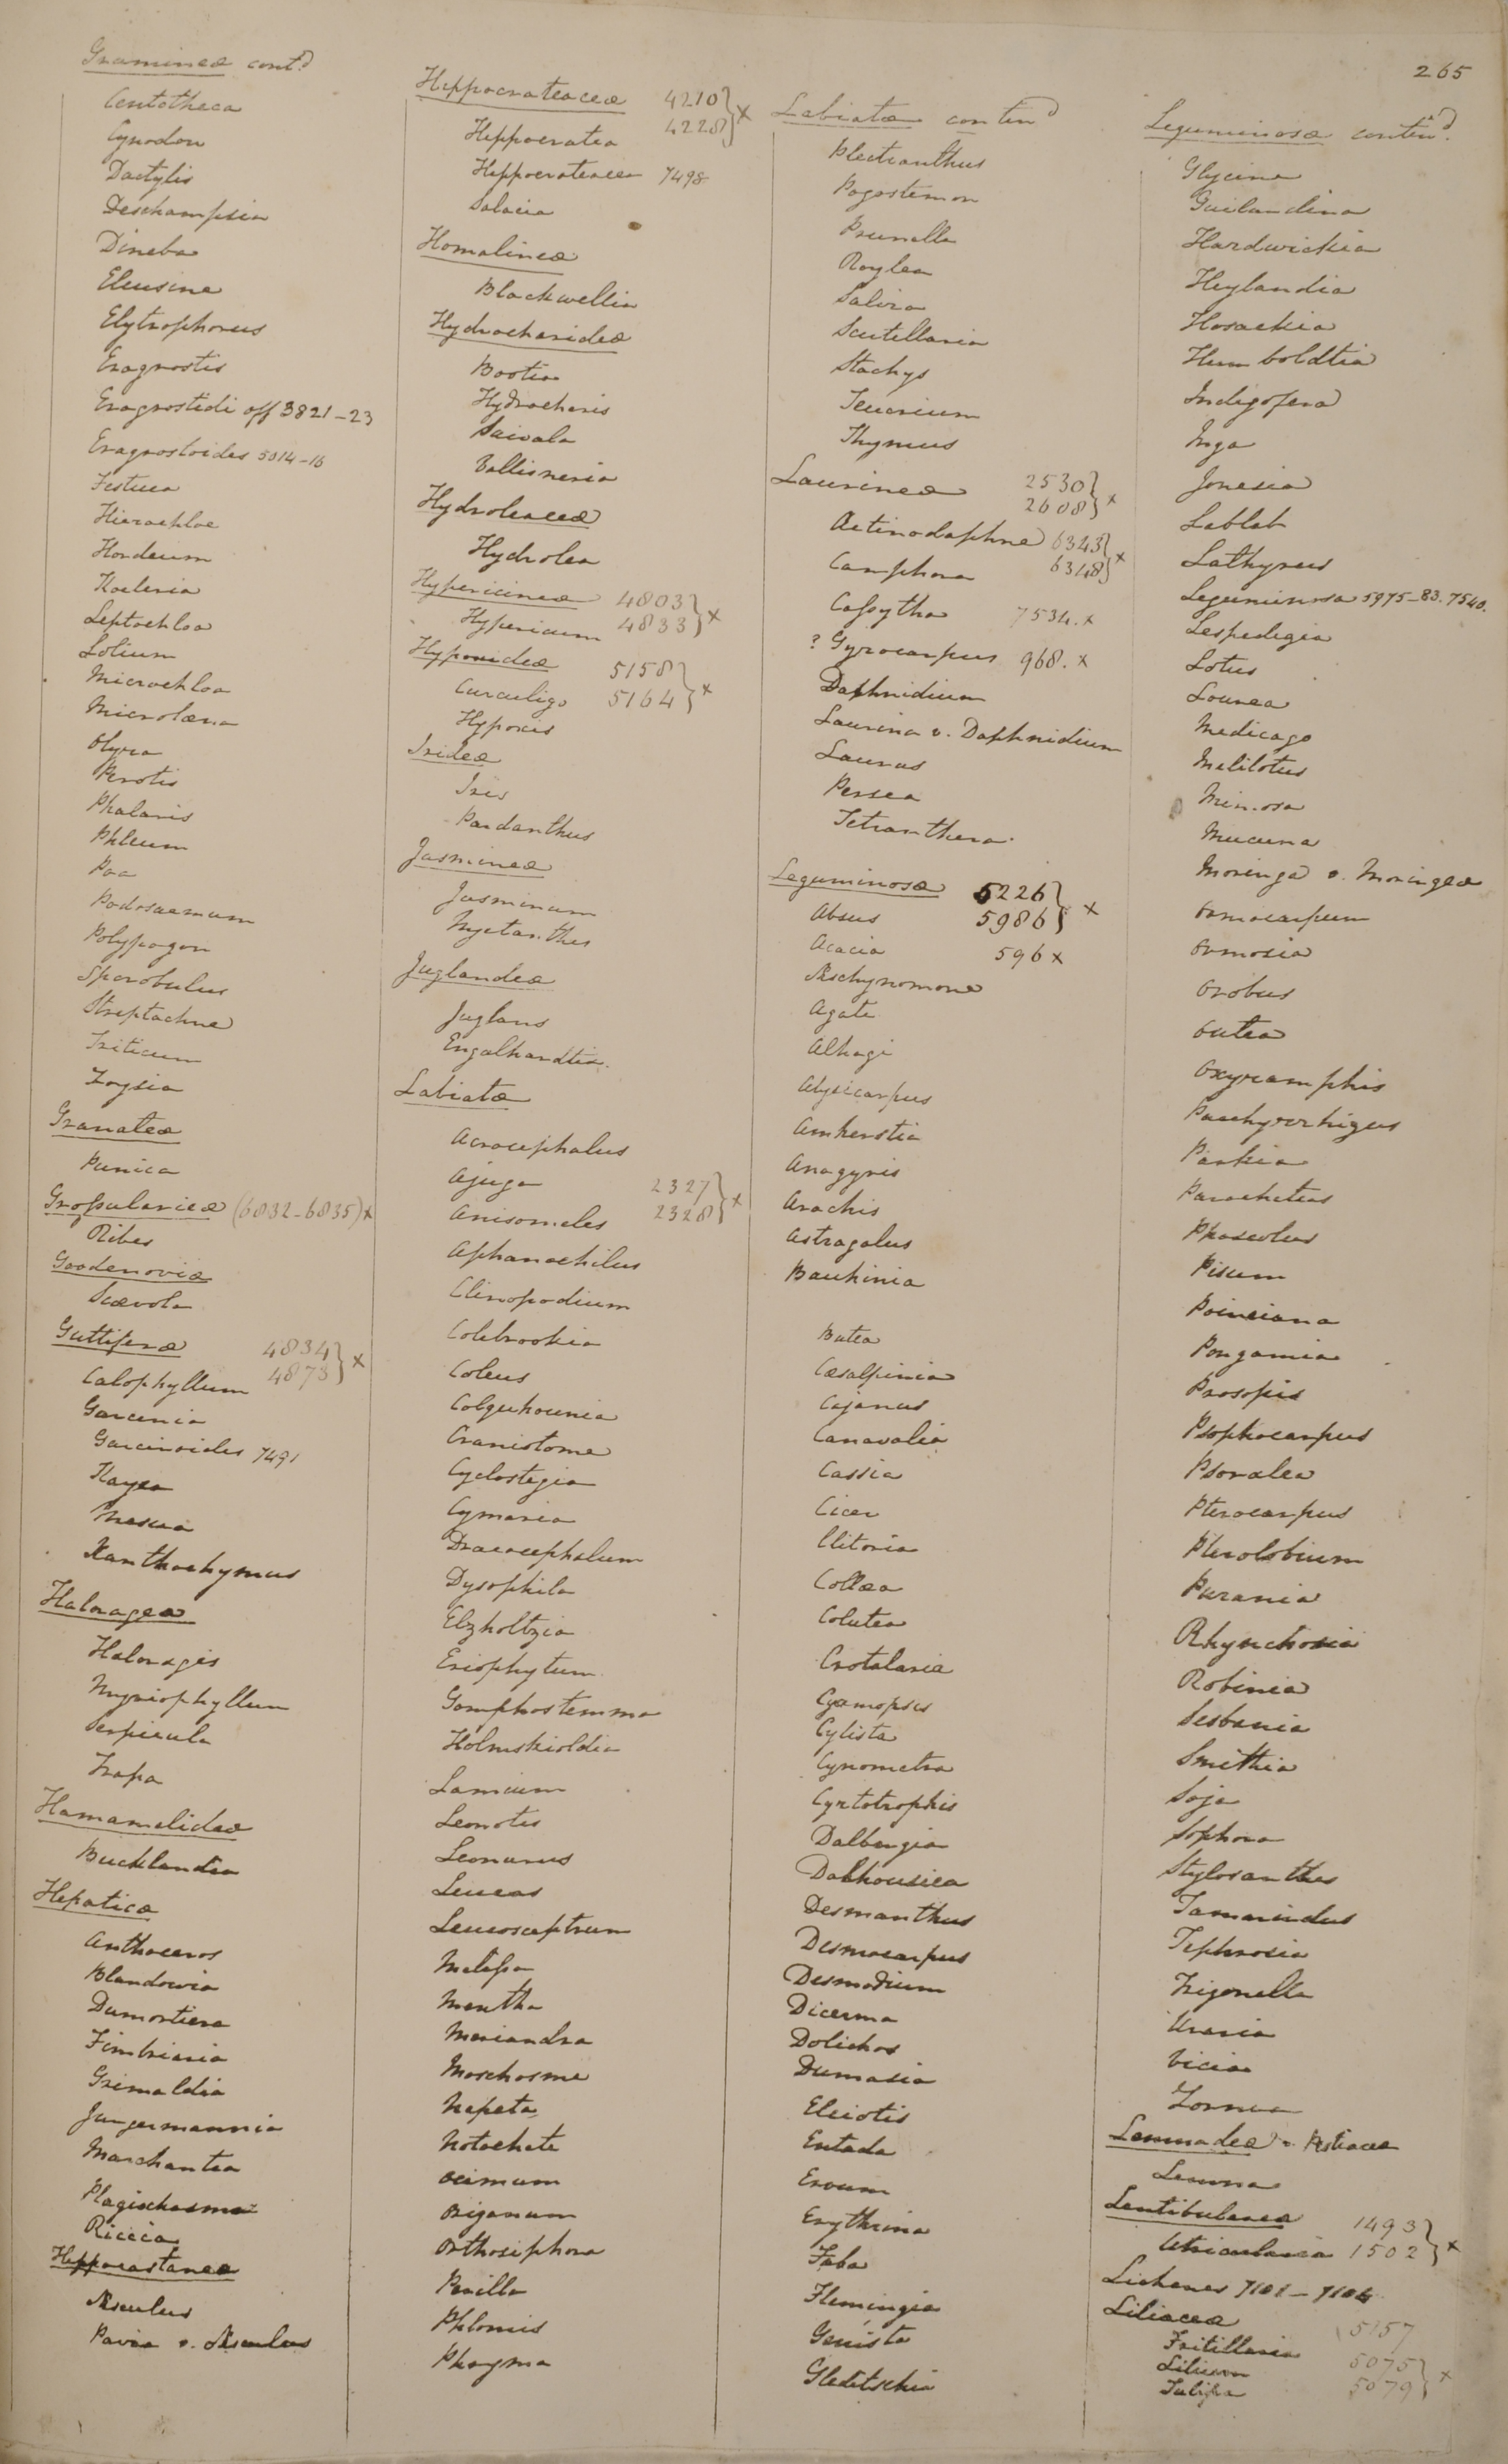 265
Gramineæ contd
Centotheca
Cynodon
Dactylis
Deschampsia
Dineba
Eleusine
Elytrophorus
Eragrostis
Eragrostidi aff 3821-23
Eragrostoides 5014-16
Festuca
Hierochloe
Hordeum
Koeleria
Leptochloa
Lolium
Microchloa
Microlæna
Olyra
Perotis
Phalaris
Phleum
Poa
Podosaemum
Polypogon
Sporobulus
Streptachne
Triticum
Zoysia
Granateæ
Punica
Grossularieæ (6832-6835) x
Ribes
Goodenoviæ
Scævola
Guttiferæ 4834 } x
Calophyllum 4873
Garcinia
Garcinioides 7491
Kayea
Mesua
Xanthochymus
Halorageæ
Haloragis
Myriophyllum
Serpicula
Trapa
Hamamelideæ
Bucklandia
Hepaticæ
Anthoceros
Blandowia
Dumortiera
Fimbriaria
Grimaldia
Jungermannia
Marchantia
Plagiochasma
Riccia
Hippocastaneæ
Æsculus
Pavia v. Æsculus
Hippocrateaceæ 4210 } x
Hippocratea 4228
Hippocrateacea 7498
Salacia
Homalineæ
Blackwellia
Hydrocharideæ
Bootia
Hydrocharis
Saivala
Vallisneria
Hydroleaceæ
Hydrolea
Hypericineæ 4803 } x
Hypericum 4833
Hypoxideæ 5158 } x
Curculigo 5164
Hypoxis
Irideæ
Iris
Pardanthus
Jasmineæ
Jasminum
Nyctanthes
Juglandeæ
Juglans
Engelhardtia
Labiatæ
Acrocephalus
Ajuga 2327 } x
Anisomeles 2328
Aphanochilus
Clinopodium
Colebrookia
Coleus
Colquhounia
Craniotome
Cyclostegia
Cymaria
Dracocephalum
Dysophila
Elzholtzia
Eriophytum
Gomphostemma
Holmskioldia
Lamium
Leonotis
Leonurus
Leucas
Leucosceptrum
Melissa
Mentha
Meriandra
Moschosma
Nepeta
Notochæte
Ocimum
Origanum
Orthosiphon
Perilla
Phlomis
Phryma
Labiatæ contind
Plectranthus
Pogostemon
Prunella
Roylea
Salvia
Scutellaria
Stachys
Teucrium
Thymus
Laurineæ 2530 } x
2608
Actinodaphne 6343 } x
Camphora 6348
Cassytha 7534. x
? Gyrocarpus 968. x
Daphnidium
Laurina v. Daphnidium
Laurus
Persea
Tetranthera
Leguminosæ 5226 } x
Absus 5986
Acacia 596 x
Æschynomone
Agati
Alhagi
Alysicarpus
Amherstia
Anagyris
Arachis
Astragalus
Bauhinia
Butea
Cæsalpinia
Cajanus
Canavalia
Cassia
Cicer
Clitoria
Collæa
Colutea
Crotalaria
Cyamopsis
Cylista
Cynometra
Cyrtotrophis
Dalbergia
Dalhousiea
Desmanthus
Desmocarpus
Desmodium
Dicerma
Dolichos
Dumasia
Eleiotis
Entada
Ervum
Erythrina
Faba
Flemingia
Genista
Gleditschia
Leguminosæ contind.
Glycine
Guilandina
Hardwickia
Heylandia
Hosackia
Humboldtia
Indigofera
Inga
Jonesia
Lablab
Lathyrus
Leguminosa 5975-83. 7540.
Lespedezia
Lotus
Lourea
Medicago
Melilotus
Mimosa
Mucuna
Moringa v. Moringeæ
Ormocarpum
Ormosia
Orobus
Outea
Oxyramphis
Pachyrrhizus
Parkia
Parochetus
Phaseolus
Pisum
Poinciana
Pongamia
Prosopis
Psophocarpus
Psoralea
Pterocarpus
Pterolobium
Purania
Rhynchosia
Robinia
Sesbania
Smithia
Soja
Sophora
Stylosanthes
Tamarindus
Tephrosia
Trigonella
Uraria
Vicia
Zornia
Lemnadeæ v. Pistiaceæ
Lemna
Lentibulareæ 1493 } x
Utricularia 1502
Lichenes 7101-7104
Liliaceæ 5157
Fritillaria 5075 } x
Lilium 5079
Tulipa